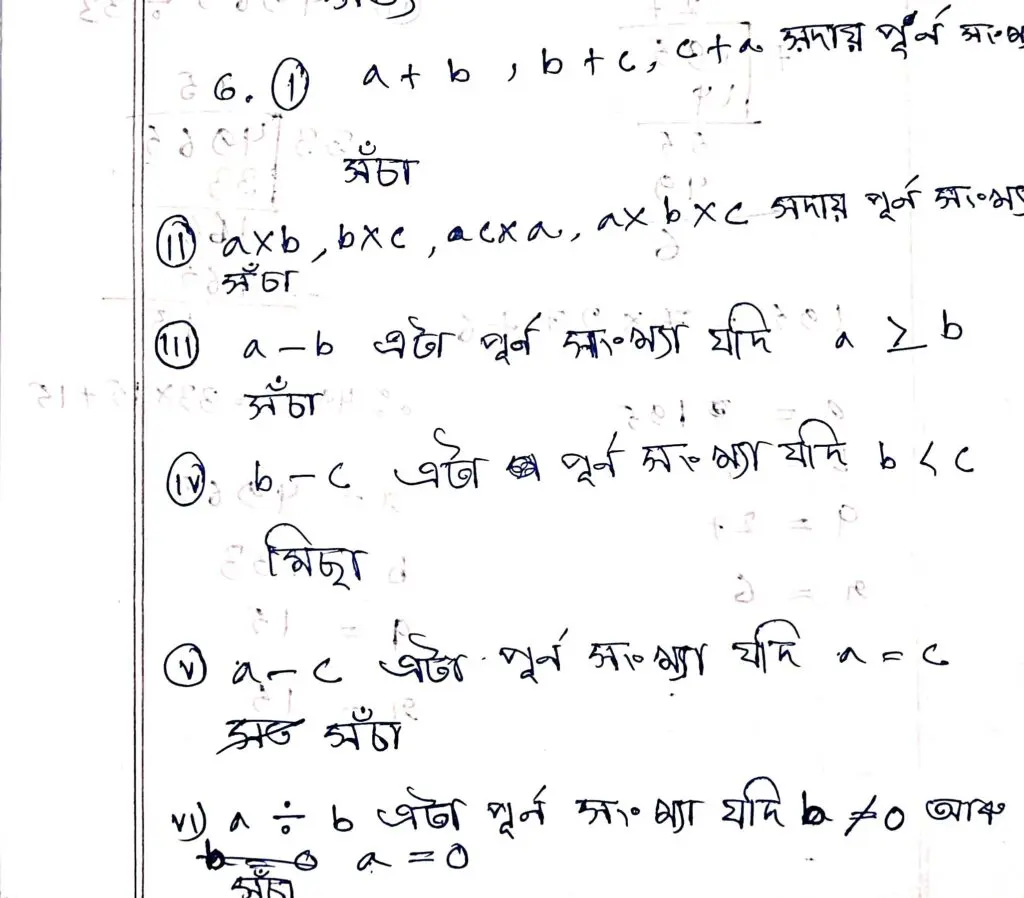 6. (i) a + b , b + c, c + a সদায় পূৰ্ন
সঁচা
(ii) a×b, b×c, acxa, a×b×c সদায় পূৰ্ন
সঁচা
(iii) a – b এটা পূৰ্ন সাংখ্যা যদি a ≥ b
সঁচা
(iv) b – c এটা পূৰ্ন সাংখ্যা যদি b < c
মিছা
(v) a – c এটা পূৰ্ন সাংখ্যা যদি a = c
সঁচা
vi) a ÷ b এটা পূৰ্ন সাংখ্যা যদি b ≠ 0 আৰু
a = 0
সঁচা